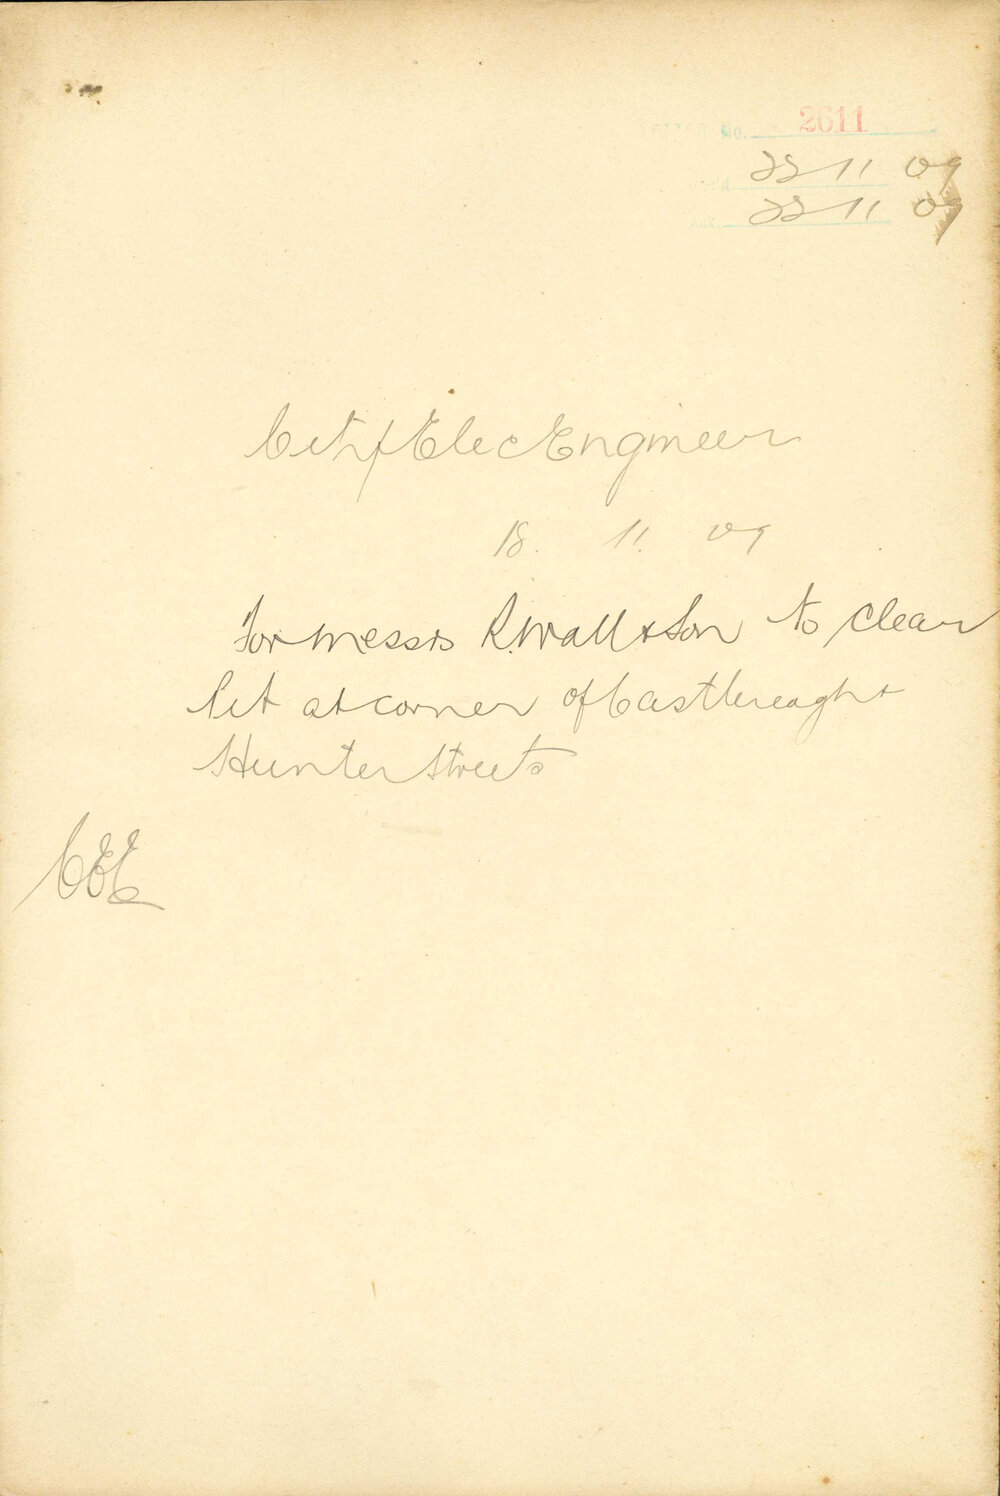 No. 2611
22 11 09
Ack. 22 11 09
City Elec Engineer
18. 11. 09
For Messrs R. Wall & Son to clear
Pit at corner of Castlereagh &
Hunter Streets
CEE